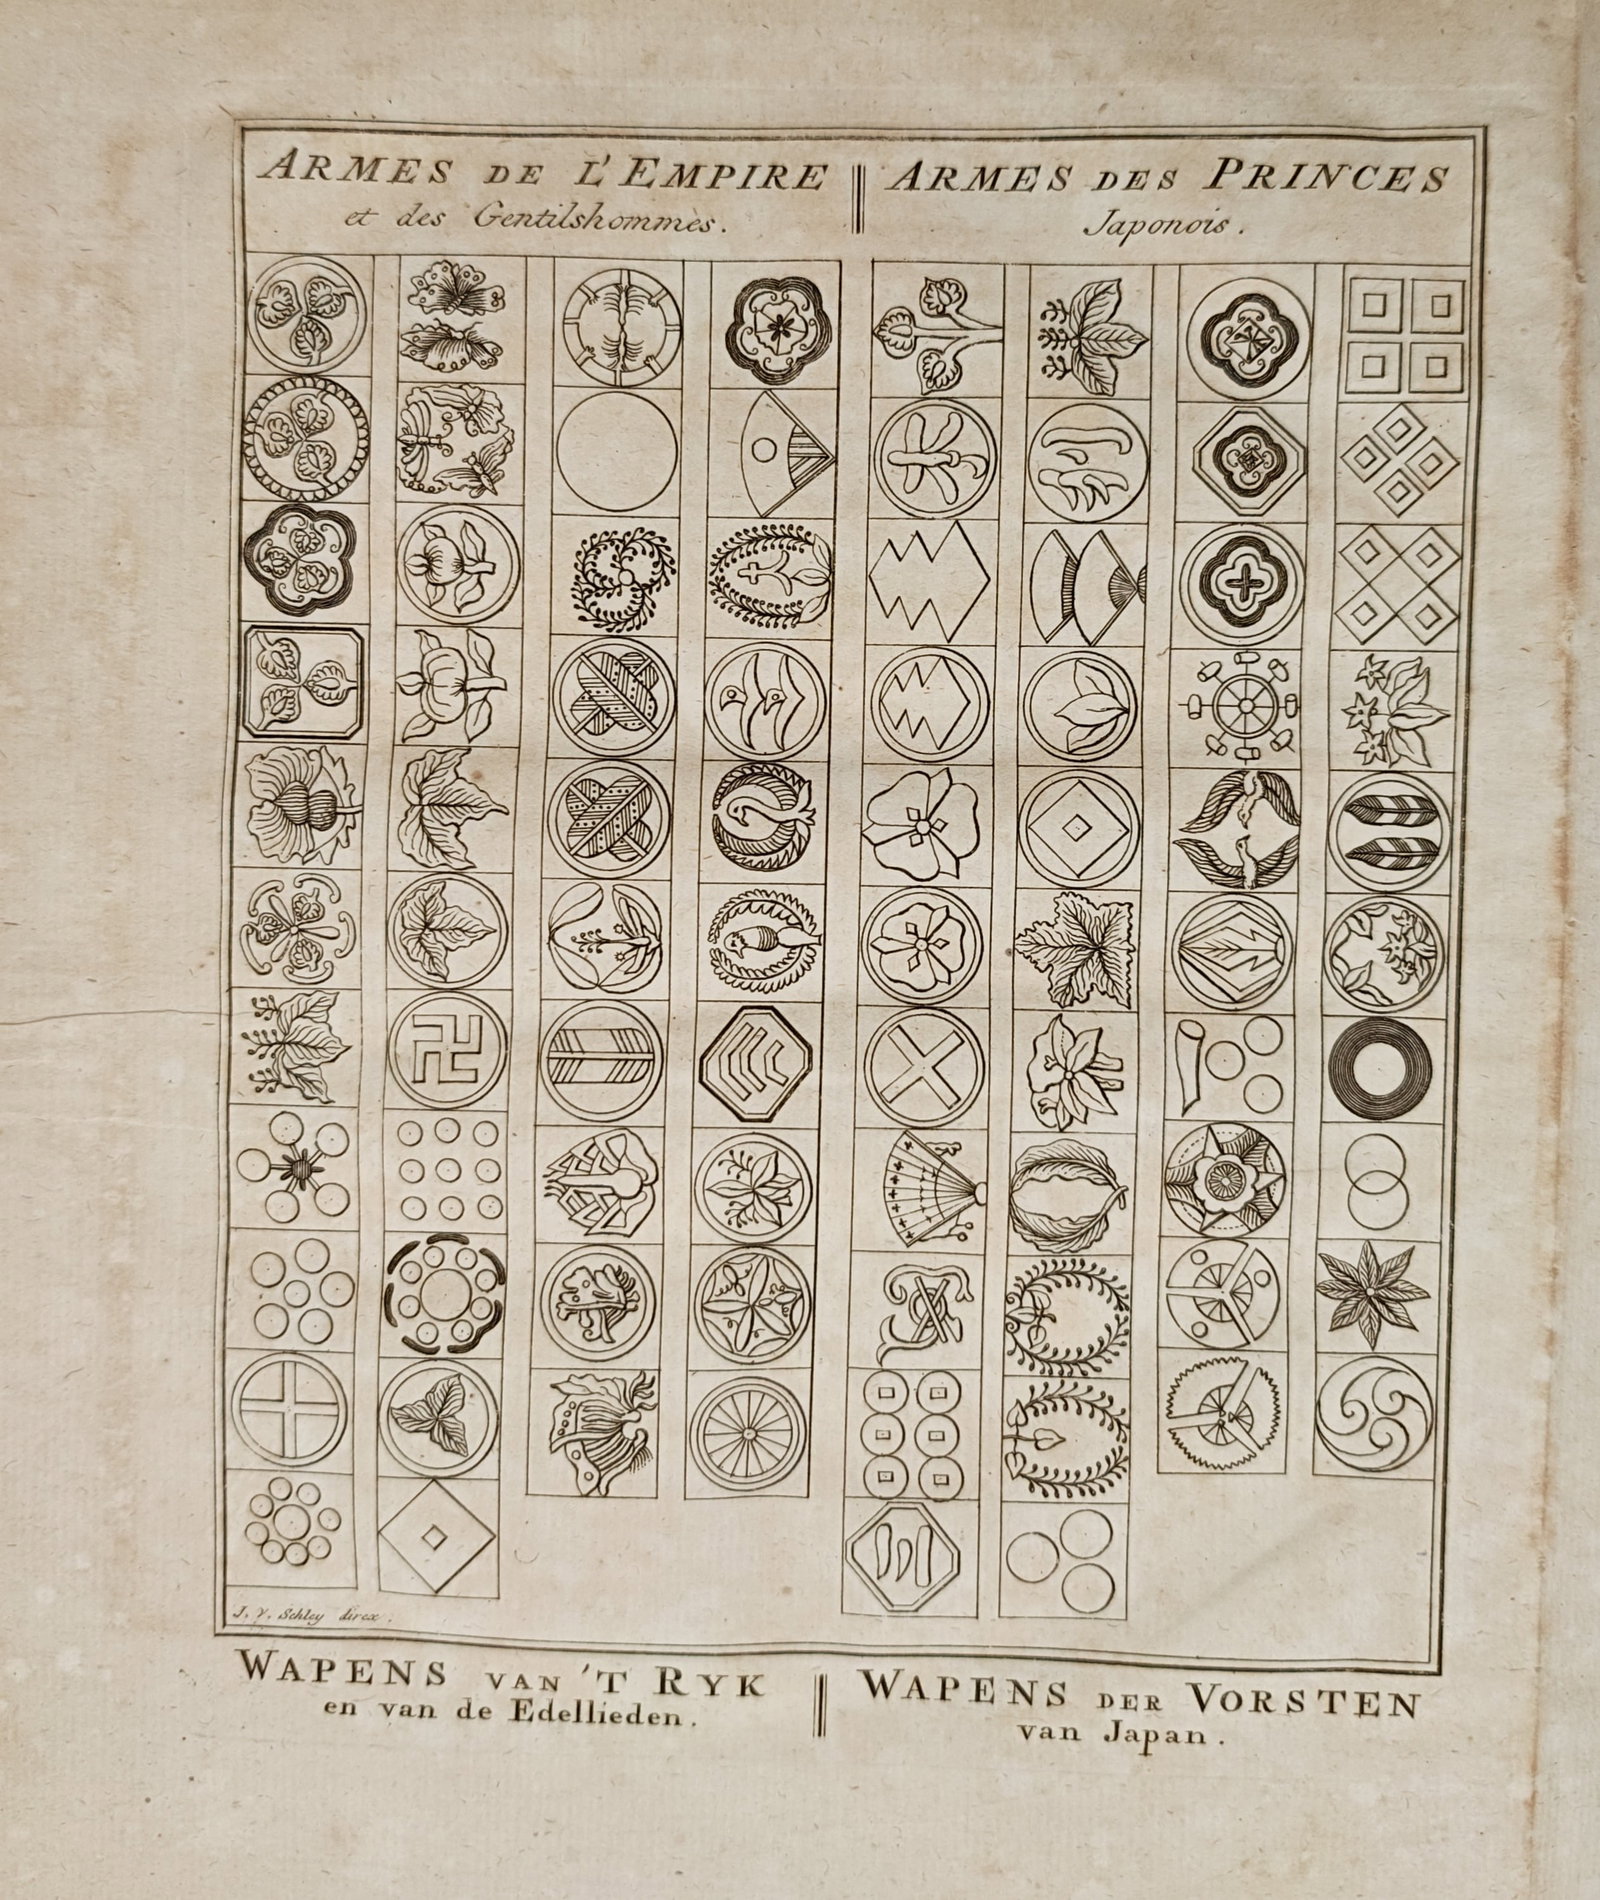 ARMES DE L'EMPIRE
et des Gentilshommes.
ARMES DES PRINCES
Japonois.
J. V. Schley direx.
WAPENS VAN 'T RYK
en van de Edellieden.
WAPENS DER VORSTEN
van Japan.